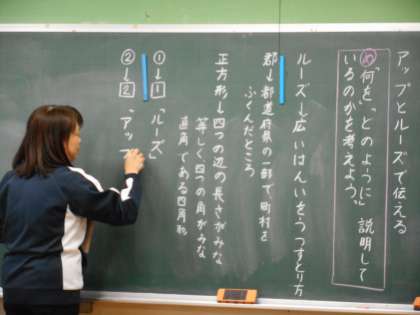 アップとルーズで伝える
め「何を」「どのように」説明して
いるのかを考えよう。
ルーズ→広いはんいをうつすとり方
郡→都道府県の一部で、町村を
ふくんだところ
正方形→四つの辺の長さがみな
等しく四つの角がみな
直角である四角形
①→1「ルーズ」
②→2「アップ